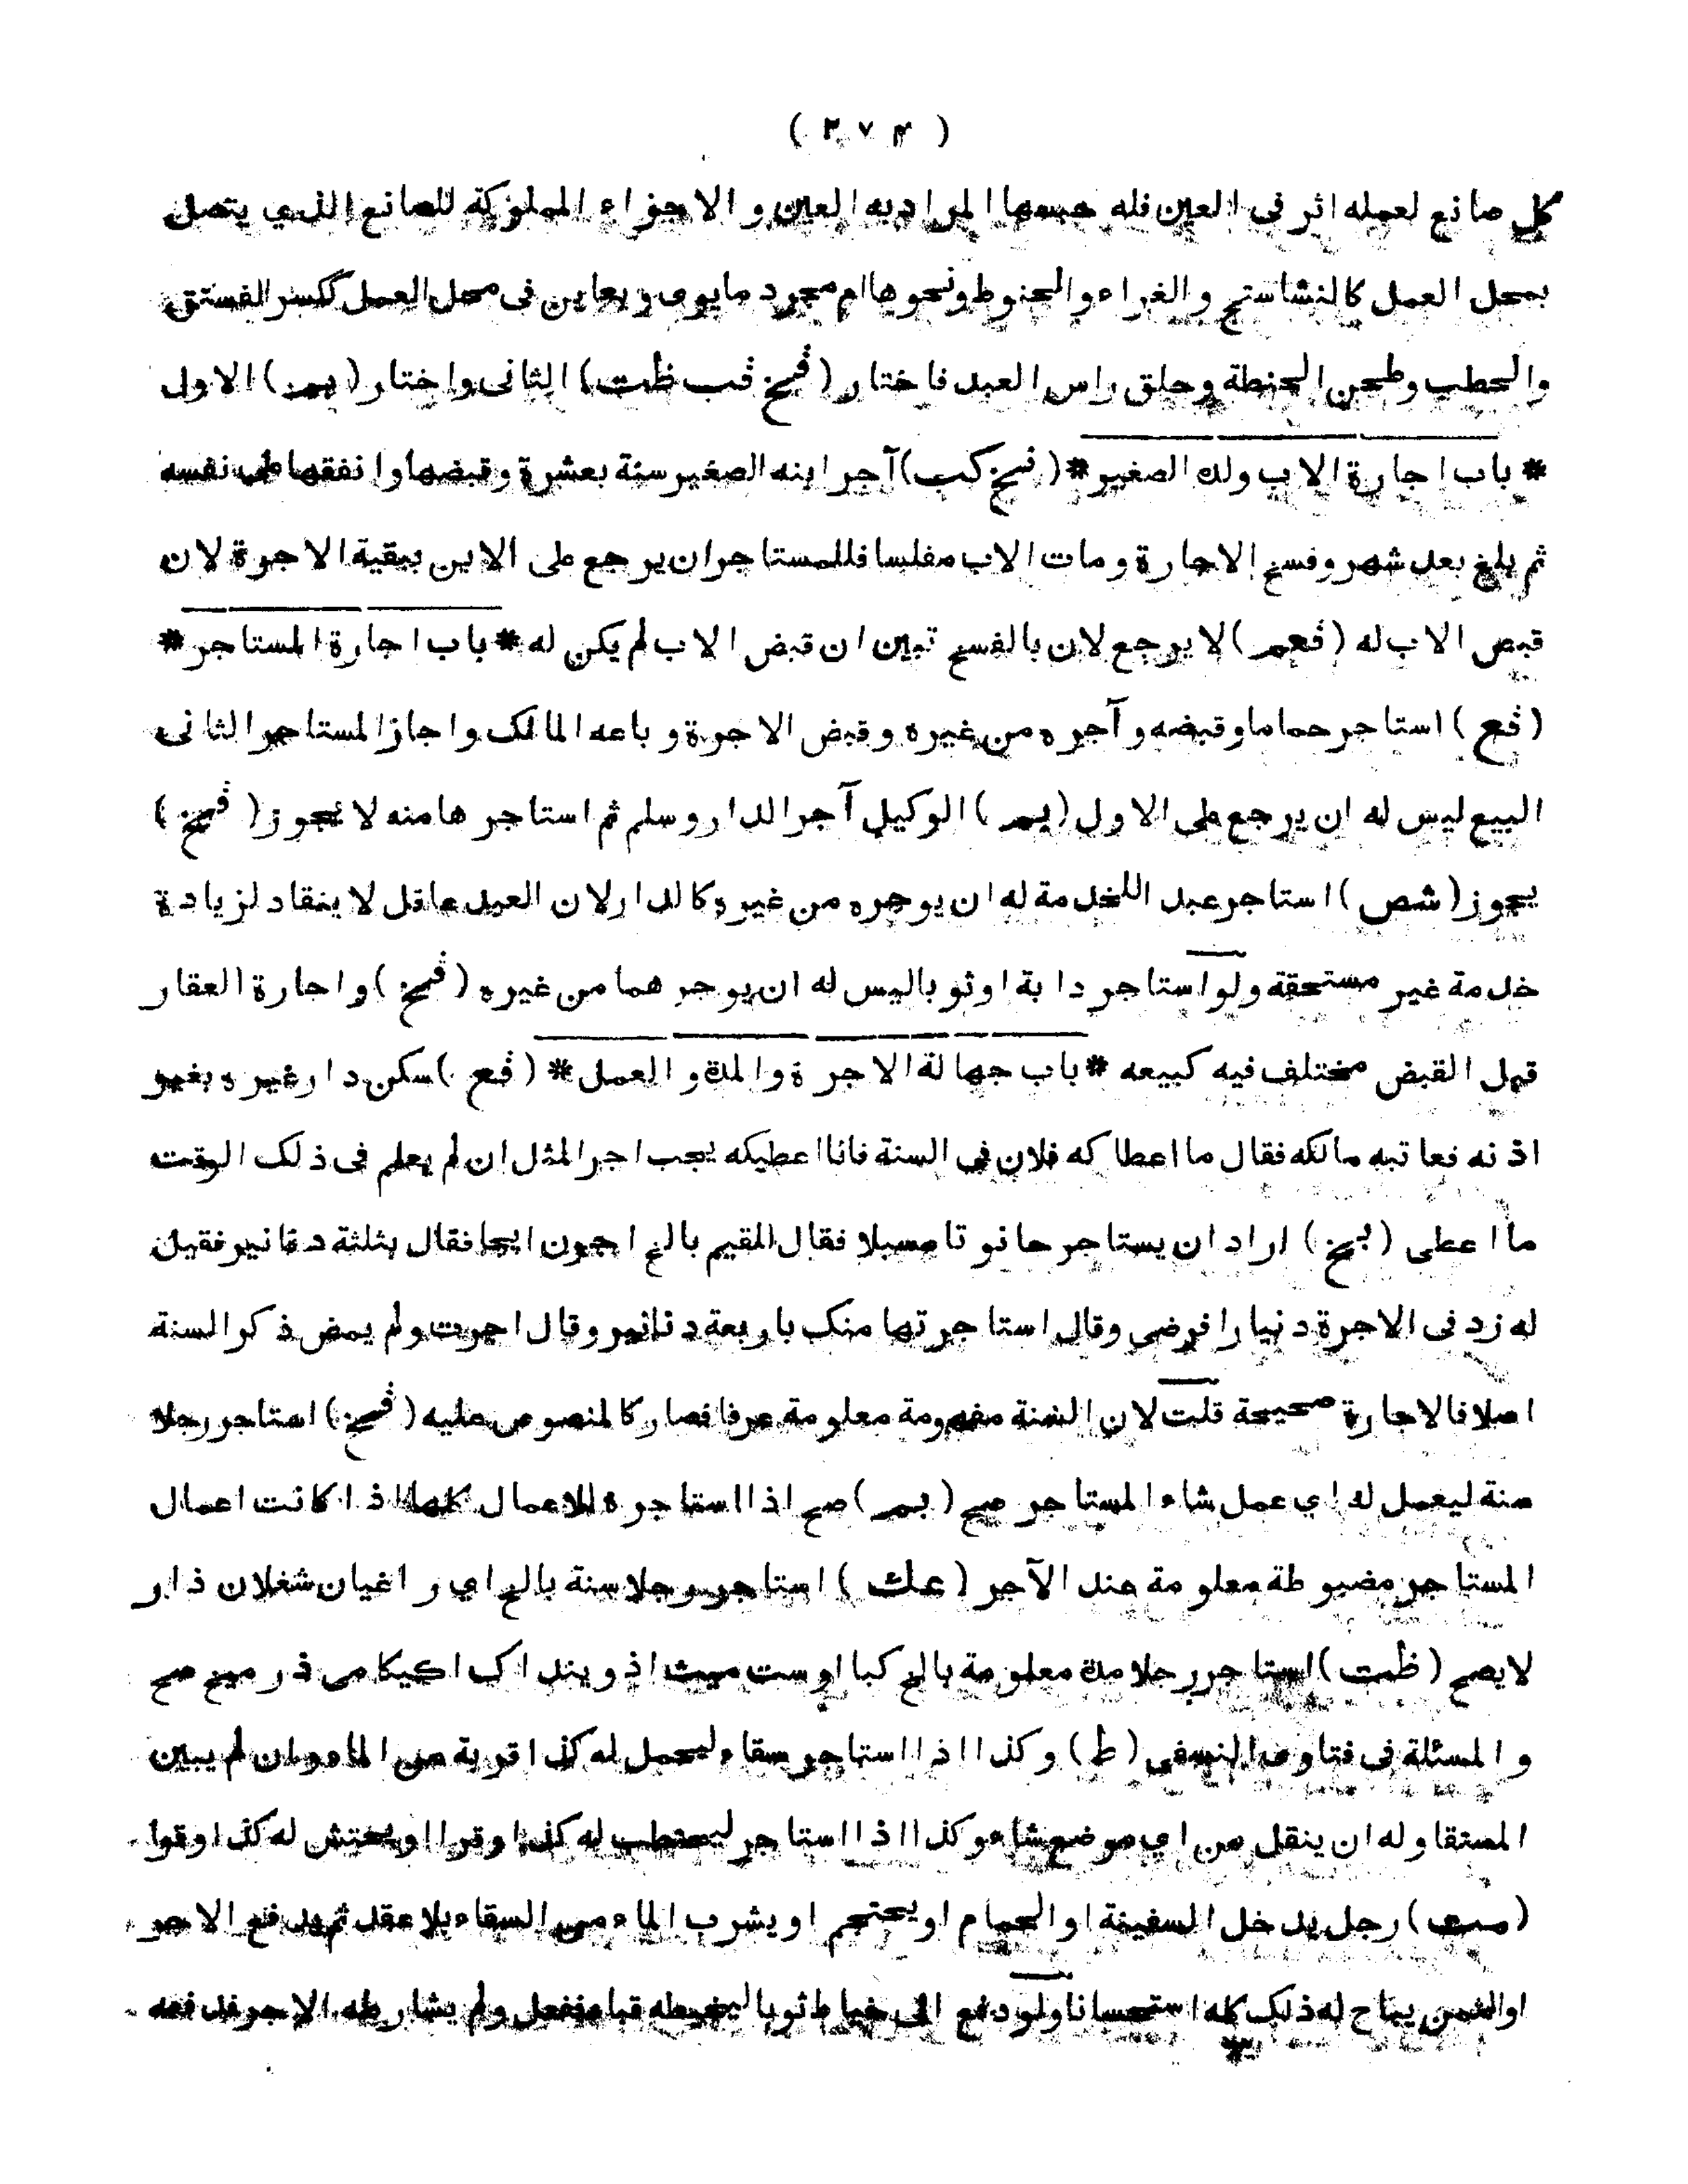 ( ٢٧٤ )
كل صانع لعمله اثر فى العين فله حبسها المراد به العين و الاجزاء المملوكة للصانع الذي يتصل
بمحل العمل كالنشاستج و الغراء و الخيوط ونحوها ام مجرد ما يرى و يعاين فى محل العمل ككسر الفستق
والحطب وطحن الحنطة وحلق راس العبد فاختار ( قمخ قب ظت ) الثانى واختار ( يمر ) الاول
* باب اجارة الاب ولده الصغير * ( نمخ كب ) آجر ابنه الصغير سنة بعشرة و قبضها وا نفقها على نفسه
ثم بلغ بعد شهر وفسخ الاجارة و مات الاب مفلسا فللمستاجر ان يرجع على الابن ببقية الاجرة لان
قبض الاب له ( فعمر ) لا يرجع لان بالفسخ تبين ان قبض الاب لم يكن له * باب اجارة المستاجر *
( قع ) استاجر حماما وقبضه و آجره من غيره وقبض الاجرة و باعه المالك واجاز المستاجر الثانى
البيع ليس له ان يرجع على الاول ( يمر ) الوكيل آجر الدار وسلم ثم استاجرها منه لا يجوز ( قمخ )
يجوز ( شص ) استاجر عبد اللخدمة له ان يوجره من غيره كالدار لان العبد عاقل لا ينقاد لزيادة
خدمة غير مستحقة ولو استاجر دابة اوثوباليس له ان يوجرهما من غيره ( قمخ ) واجارة العقار
قبل القبض مختلف فيه كبيعه * باب جهالة الاجرة والمدة و العمل * ( قع ) سكن دار غيره بغير
اذنه فعاتبه مالكه فقال ما اعطاكه فلان فى السنة فانا اعطيكه يجب اجر المثل ان لم يعلم فى ذلك الوقت
ما اعطى ( بخ ) اراد ان يستاجر حانوتا مسبلا فقال للقيم بالخ اجون ايجا فقال بثلثة دنانير فقيل
له زد فى الاجرة دنيارا فرضى وقال استاجرتها منك باربعة دنانير وقال اجرت ولم يمض ذكر السنة
اصلا فالاجارة صحيحة قلت لان السنة مفهومة معلومة عرفا فصار كالمنصوص عليه ( قمخ ) استاجر رجلا
سنة ليعمل له اي عمل شاء المستاجر صح ( بمر ) صح اذا استاجره للاعمال كلها اذا كانت اعمال
المستاجر مضبوطة معلومة عند الآجر ( عك ) استاجر رجلا سنة بالخ اي ر اغيان شغلان ذار
لا يصح ( ظت ) استاجر رجلا مدة معلومة بالخ كبا اوست ميث اذ ويند اك اكيكا مى ذر ميخ صح
و المسئلة فى فتاوى النسفى ( ط ) وكذا اذا استاجر سقاء ليحمل له كذا قربة من الماء وان لم يبين
المستقا وله ان ينقل من اي موضع شاء وكذا اذا استاجر ليحتطب له كذا وقرا او يحتش له كذا وقرا
رجل يدخل السفينة او الحمام او يحتجم او يشرب الماء من السقاء بلا عقد ثم يدفع الاجر
اوالثمن يباح له ذلك كله استحسانا ولو دفع الى خياط ثوبا ليخيطه قباء ففعل ولم يشارطه الاجر فدفعه